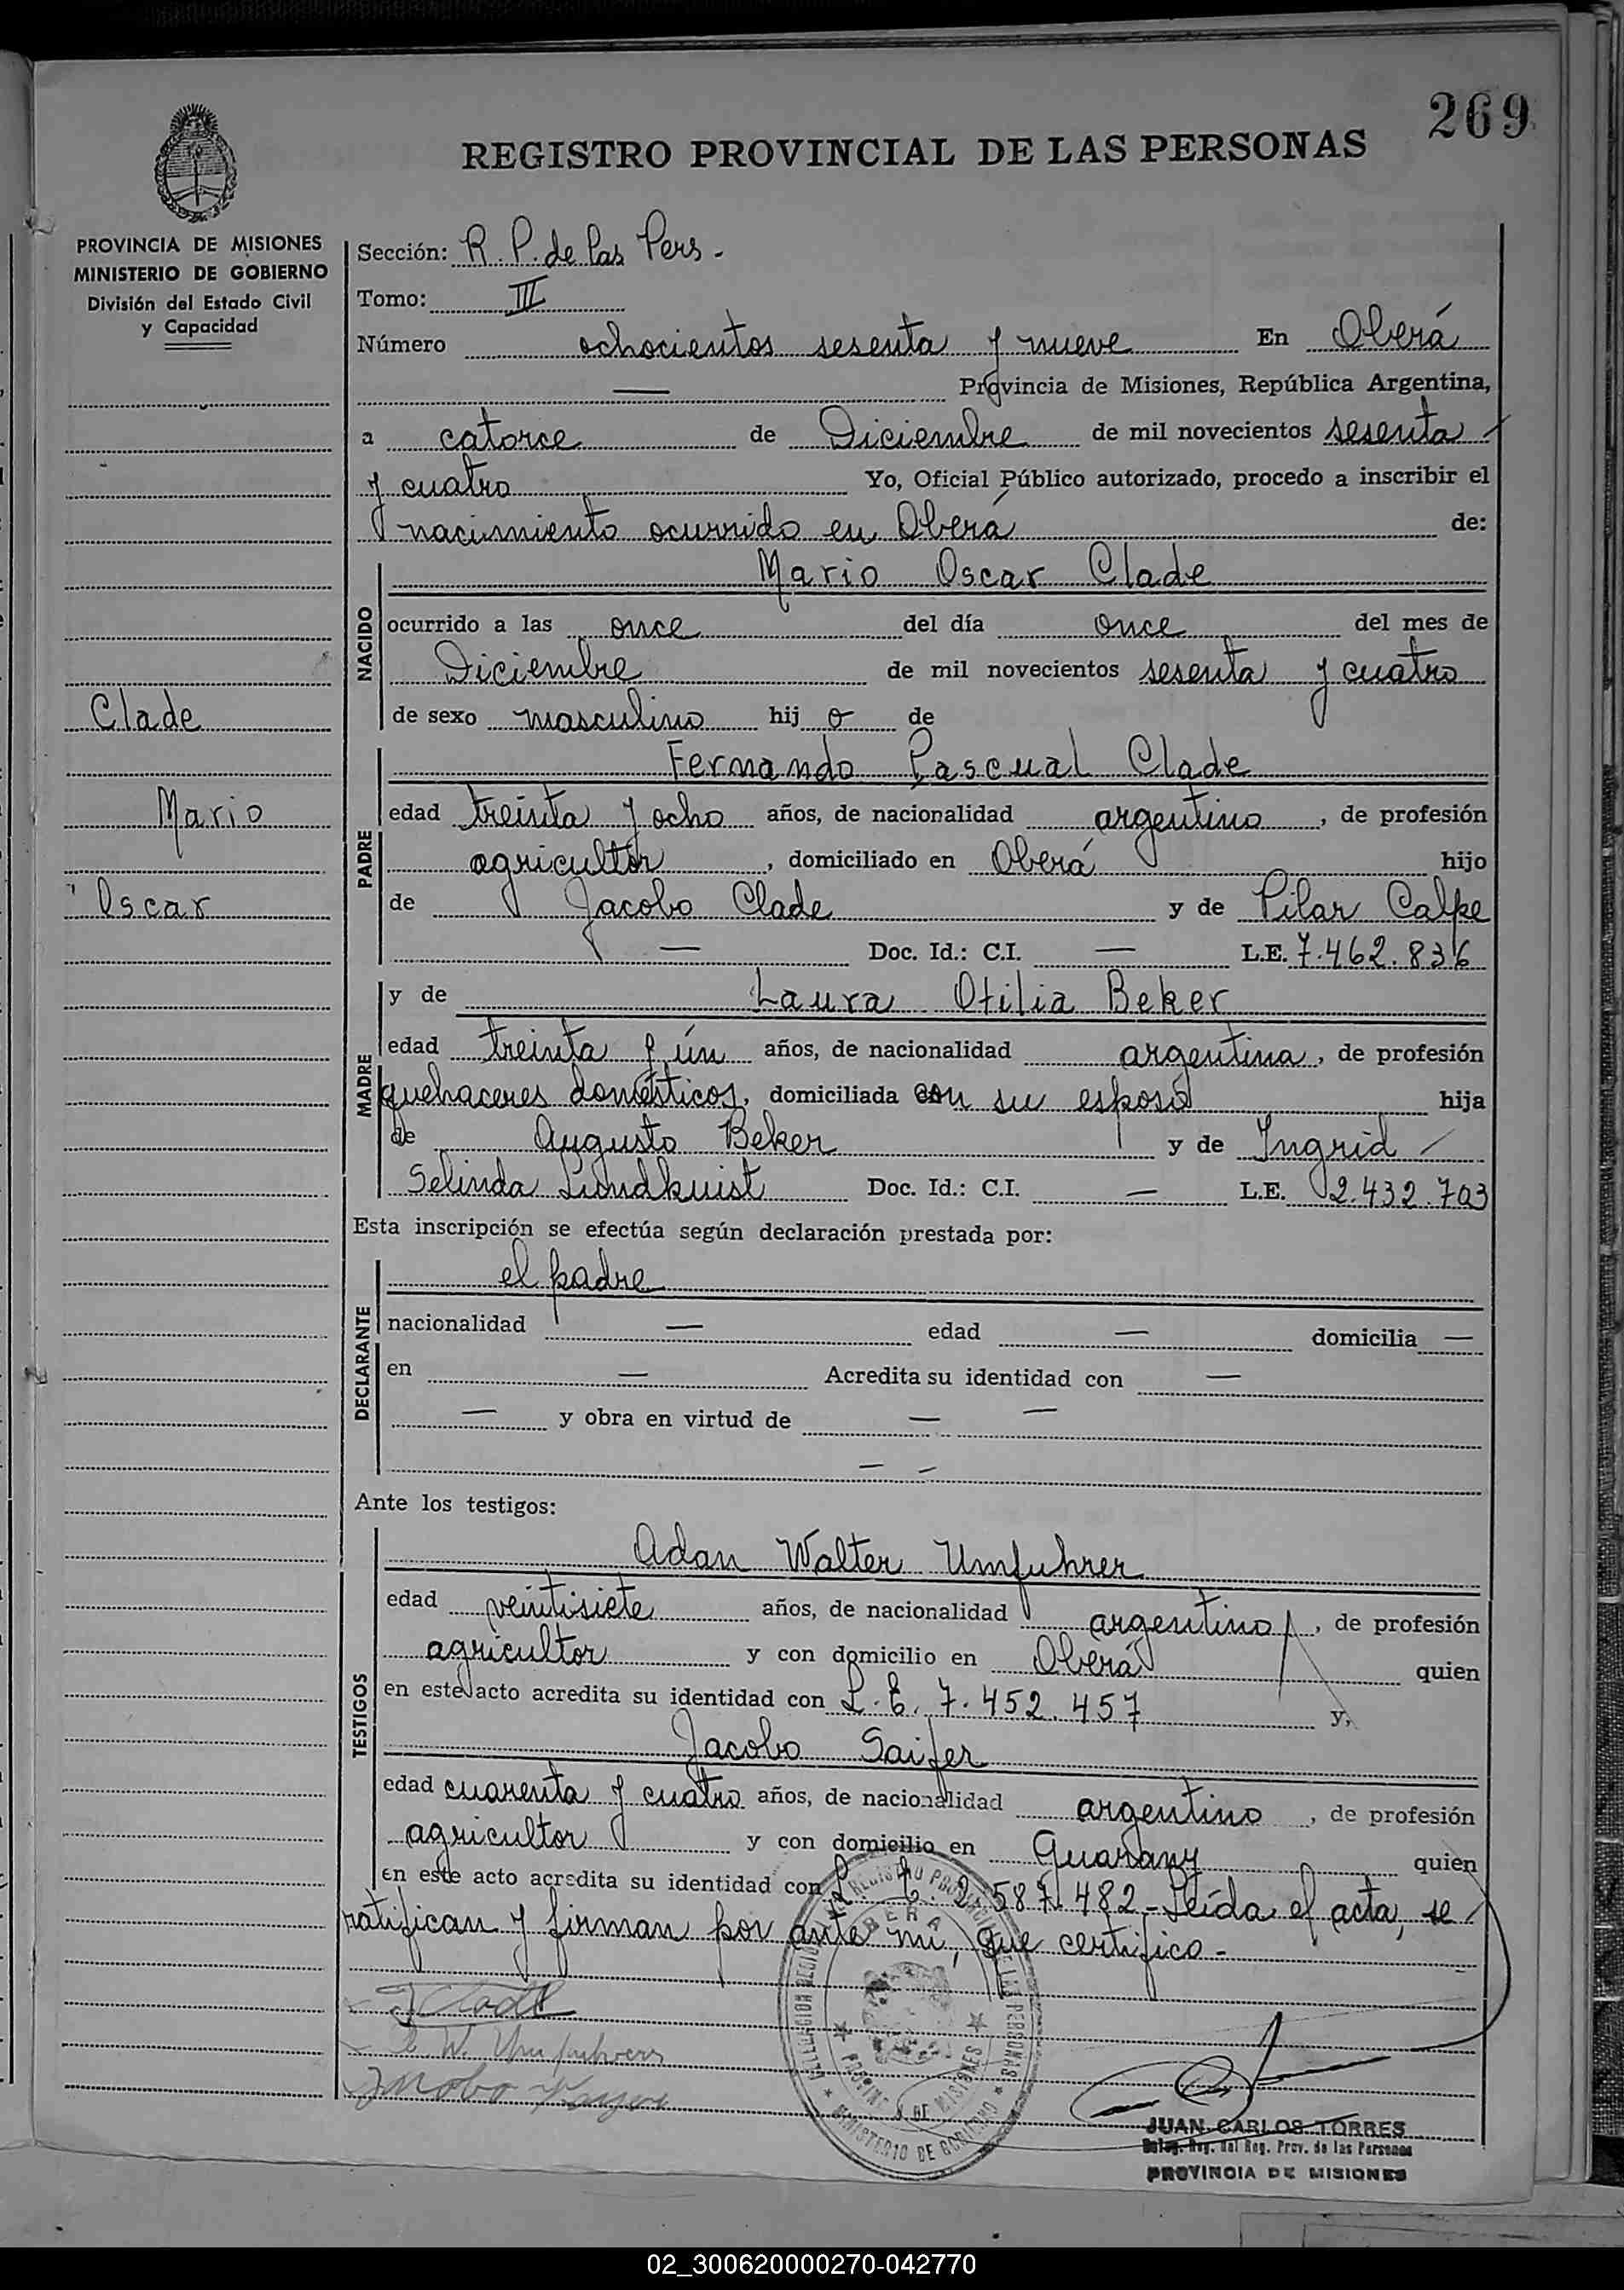 269
REGISTRO PROVINCIAL DE LAS PERSONAS
PROVINCIA DE MISIONES
MINISTERIO DE GOBIERNO
División del Estado Civil
y Capacidad
Clade
Mario
Oscar
Sección: R. P. de las Pers.
Tomo: III
Número ochocientos sesenta y nueve En Oberá
— Provincia de Misiones, República Argentina,
a catorce de Diciembre de mil novecientos sesenta
y cuatro Yo, Oficial Público autorizado, procedo a inscribir el
nacimiento ocurrido en Oberá de:
NACIDO
Mario Oscar Clade
ocurrido a las once del día once del mes de
Diciembre de mil novecientos sesenta y cuatro
de sexo masculino hij o de
PADRE
Fernando Pascual Clade
edad treinta y ocho años, de nacionalidad argentino, de profesión
agricultor, domiciliado en Oberá hijo
de Jacobo Clade y de Pilar Calpe
— Doc. Id.: C.I. — L.E. 7.462.836
MADRE
y de Laura Otilia Beker
edad treinta y ún años, de nacionalidad argentina, de profesión
quehaceres domésticos, domiciliada con su esposo hija
de Augusto Beker y de Ingrid
Selinda Lundkuist Doc. Id.: C.I. — L.E. 2.432.703
Esta inscripción se efectúa según declaración prestada por:
DECLARANTE
el padre
nacionalidad — edad — domicilia —
en — Acredita su identidad con —
— y obra en virtud de — —
— —
Ante los testigos:
TESTIGOS
Adan Walter Umfuhrer
edad veintisiete años, de nacionalidad argentino, de profesión
agricultor y con domicilio en Oberá quien
en este acto acredita su identidad con L. E. 7.452.457 y,
Jacobo Saifer
edad cuarenta y cuatro años, de nacionalidad argentino, de profesión
agricultor y con domicilio en Guarany quien
en este acto acredita su identidad con 587.482 - Leída el acta, se
ratifican y firman por ante mí, que certifico -
OBERA
PROVINCIA DE MISIONES
MINISTERIO DE GOBIERNO
JUAN CARLOS TORRES
Deleg. Reg. del Reg. Prov. de las Personas
PROVINCIA DE MISIONES
02_300620000270-042770